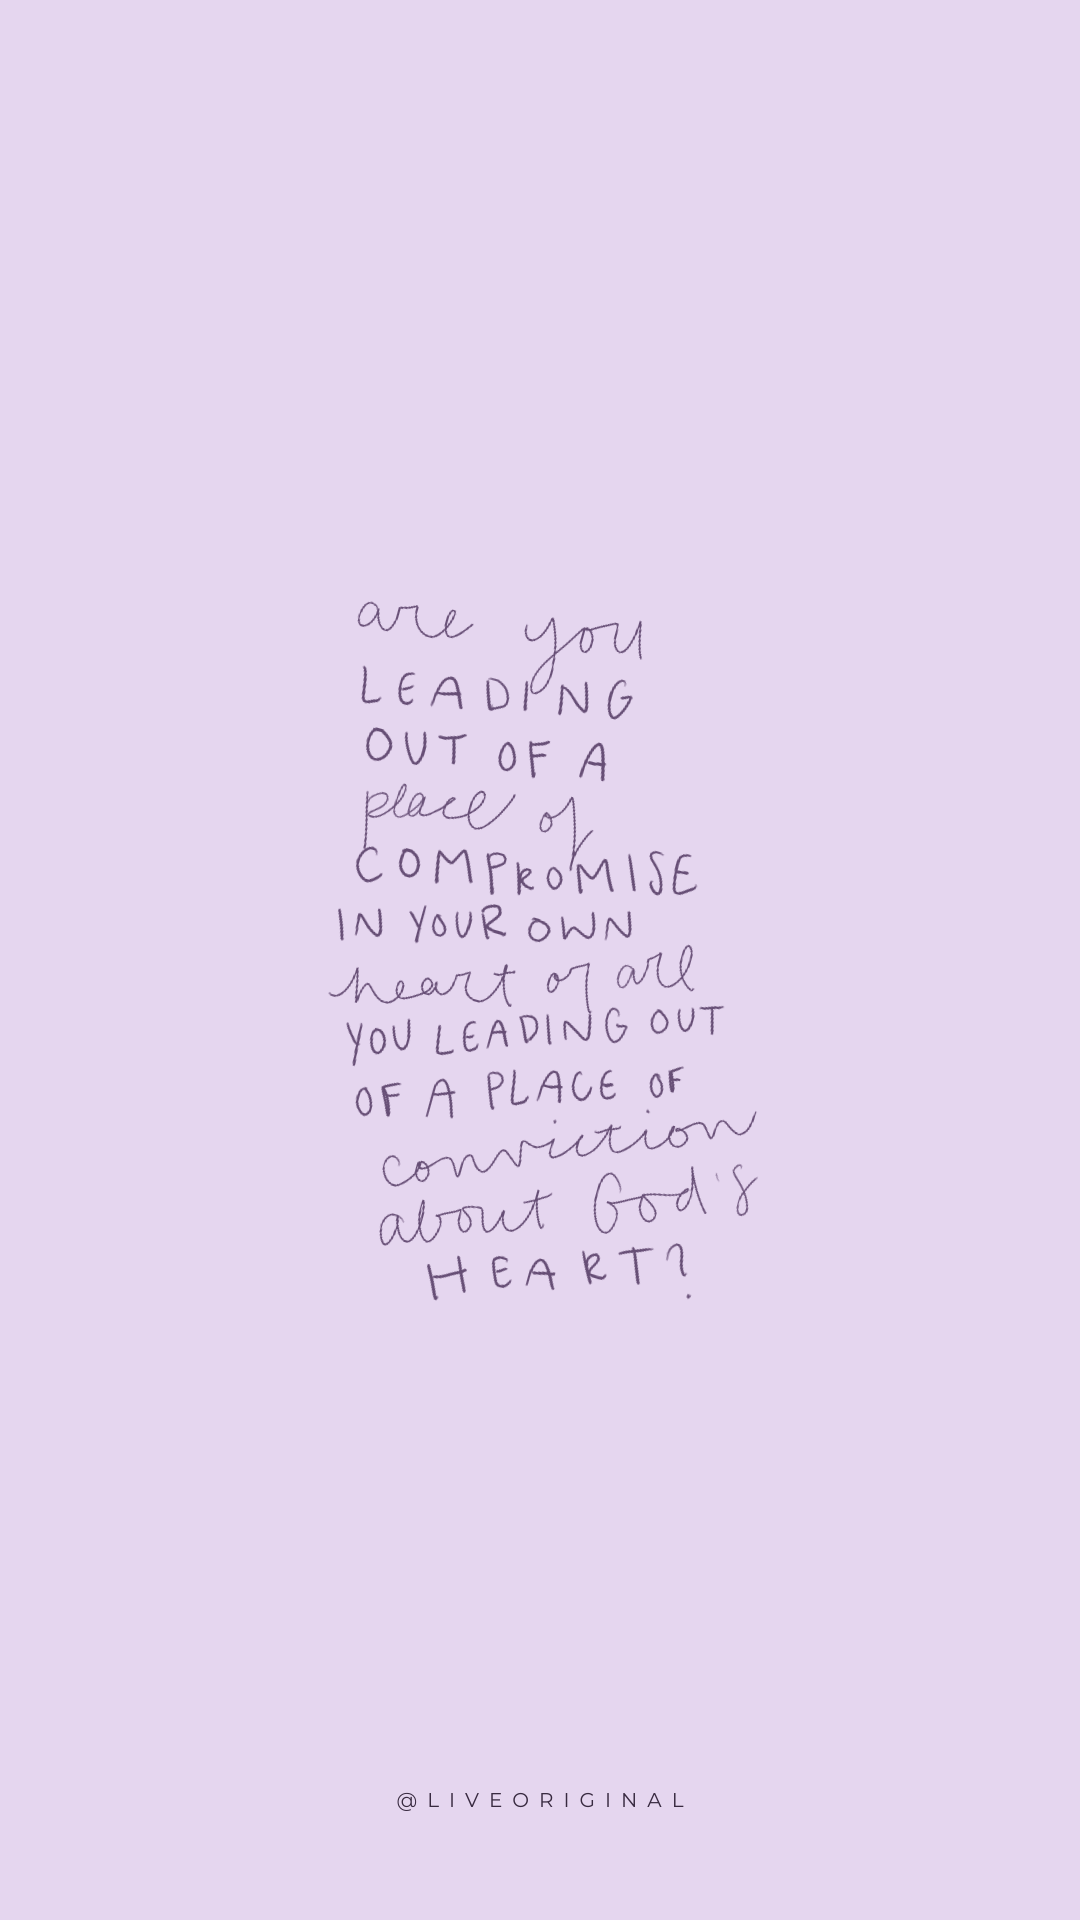 are you
LEADING
OUT OF A
place of
COMPROMISE
IN YOUR OWN
heart or are
YOU LEADING OUT
OF A PLACE OF
conviction
about God's
HEART?
@LIVEORIGINAL